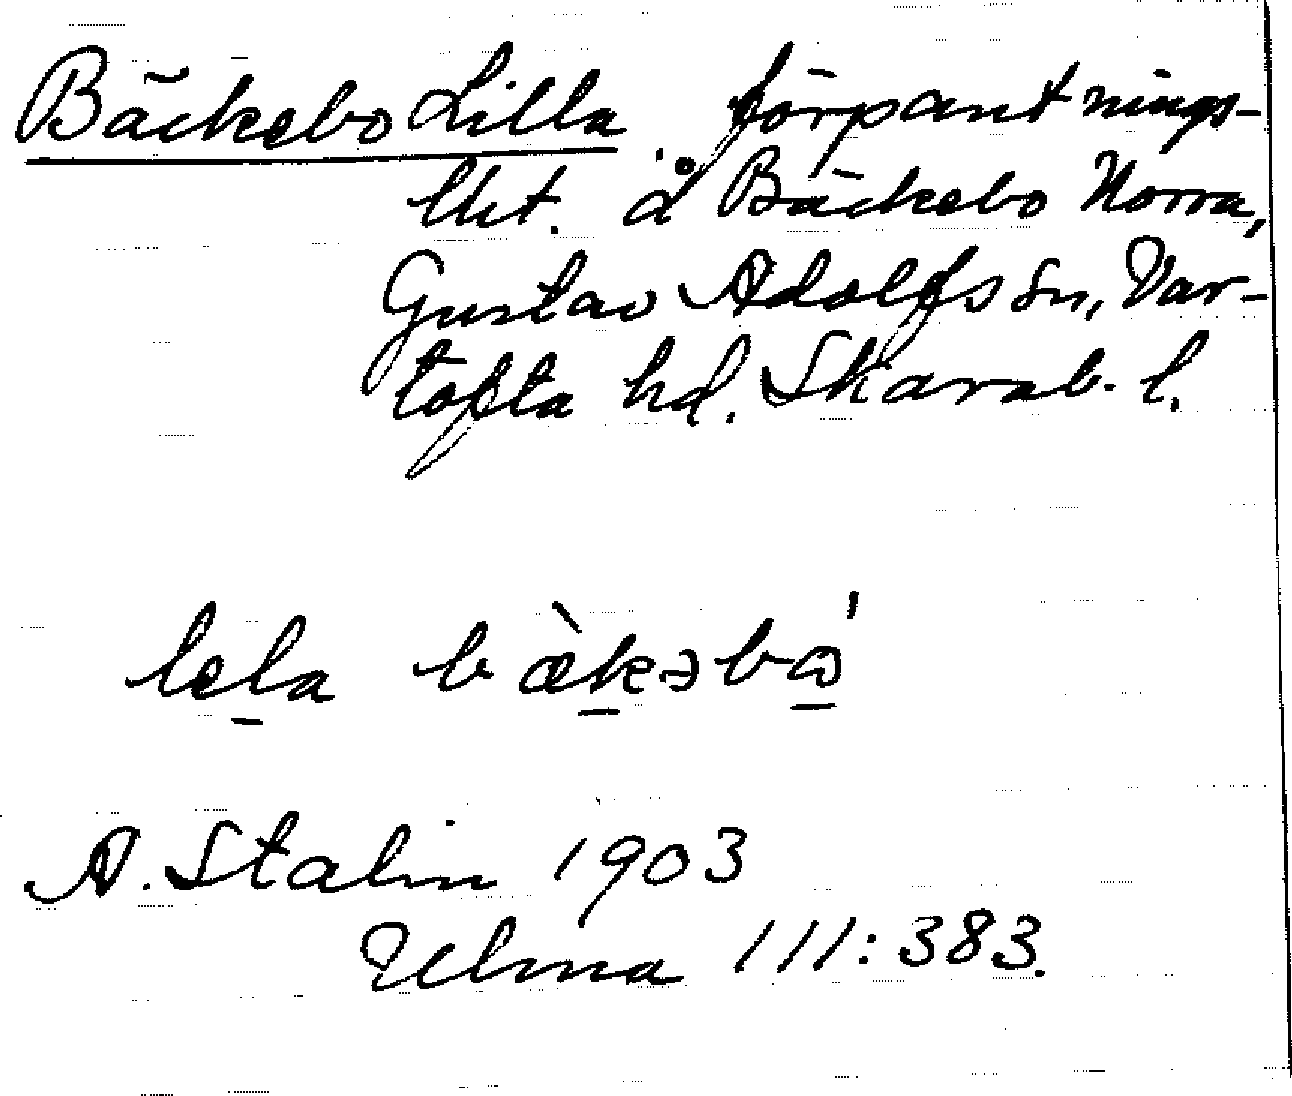 Bäckebo Lilla förpantnings-
lht. å Bäckebo Norra,
Gustav Adolfs sn, Var-
tofta hd. Skarab. l.
lela bæ̀kəbɷ'
A. Stalin 1903
Ulma 111:383.